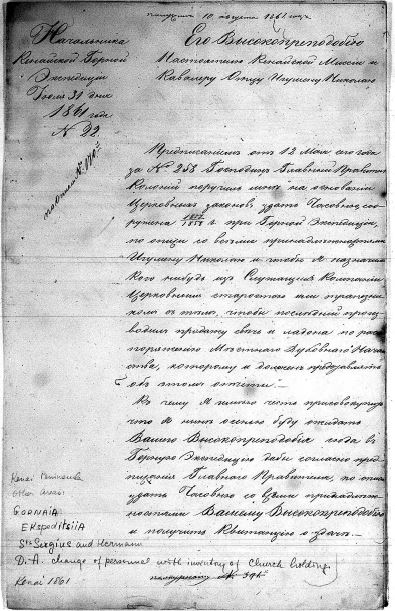 получено 10 августа 1861 года
Начальника
Кенайской Горной
Экспедиции
Июля 31 дня
1861 года
№ 22
Его Высокопреподобию
Настоятелю Кенайской Миссии и
Кавалеру Отцу Игумену Николаю
Предписанием от 12 Мая сего года
за № 258 Господин Главный Правитель
Колоний поручил мне на основании
Церковных законов, сдать Часовню, соо-
ружена 1857/1858 г. при Горной Экспедиции,
по описи со всеми принадлежностями
Игумену Николаю и чтобы я назначил
кого нибудь из Служащих Компании
Церковным старостою или трапезни-
ком с тем, чтобы последний произ-
водил продажу свеч и ладона по рас-
поряжению Местнаго Духовнаго Начальс-
тва, которому и должен представлять
об этом отчеты.
К чему я имею честь присовокупить
что я нынѣ осенью буду ожидать
Вашего Высокопреподобия сюда в
Горную Экспедицию дабы согласно пред-
писания Главнаго Правителя, по описи
сдать Часовню со всеми принадлеж-
ностями Вашему Высокопреподобию
и получить Квитанцию о сдаче.
Kenai Peninsula
Other Areas:
GORNAIA
EKspeditsiiA
Sts Sergius and Herman
D.A. change of personnel with inventory of Church holding.
Kenai 1861